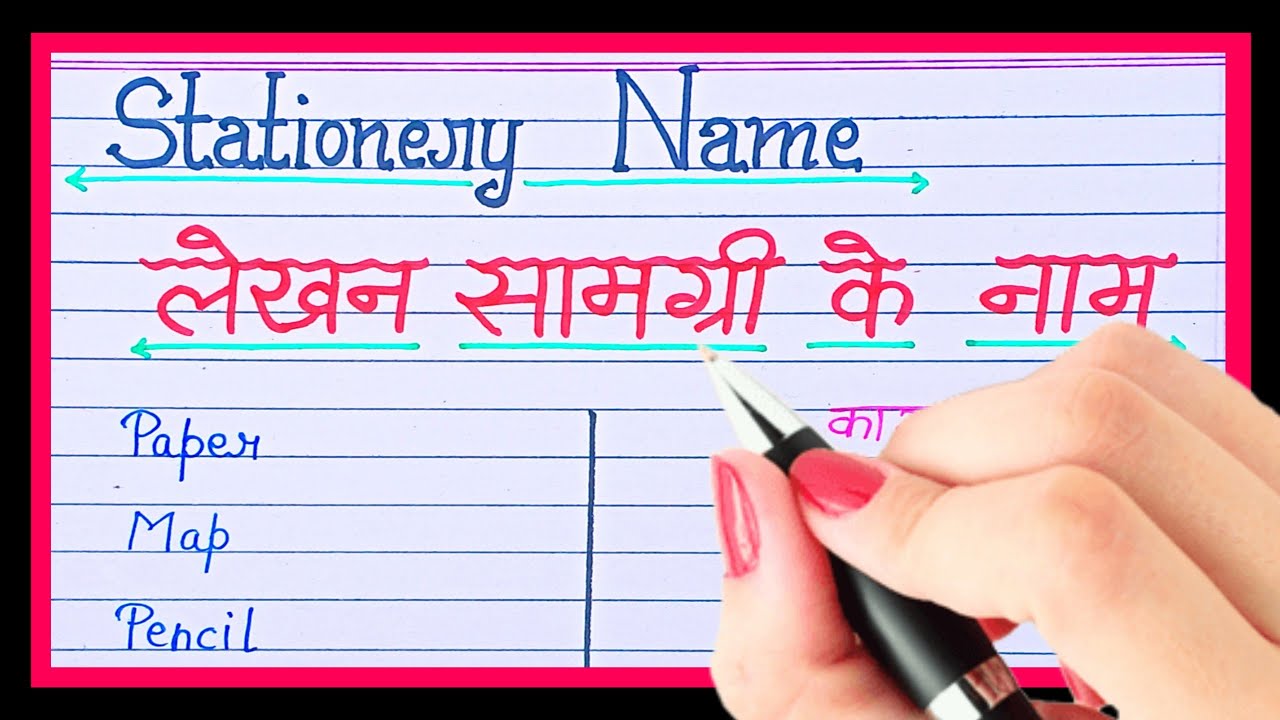 Stationery Name
लेखन सामग्री के नाम
Paper
Map
Pencil